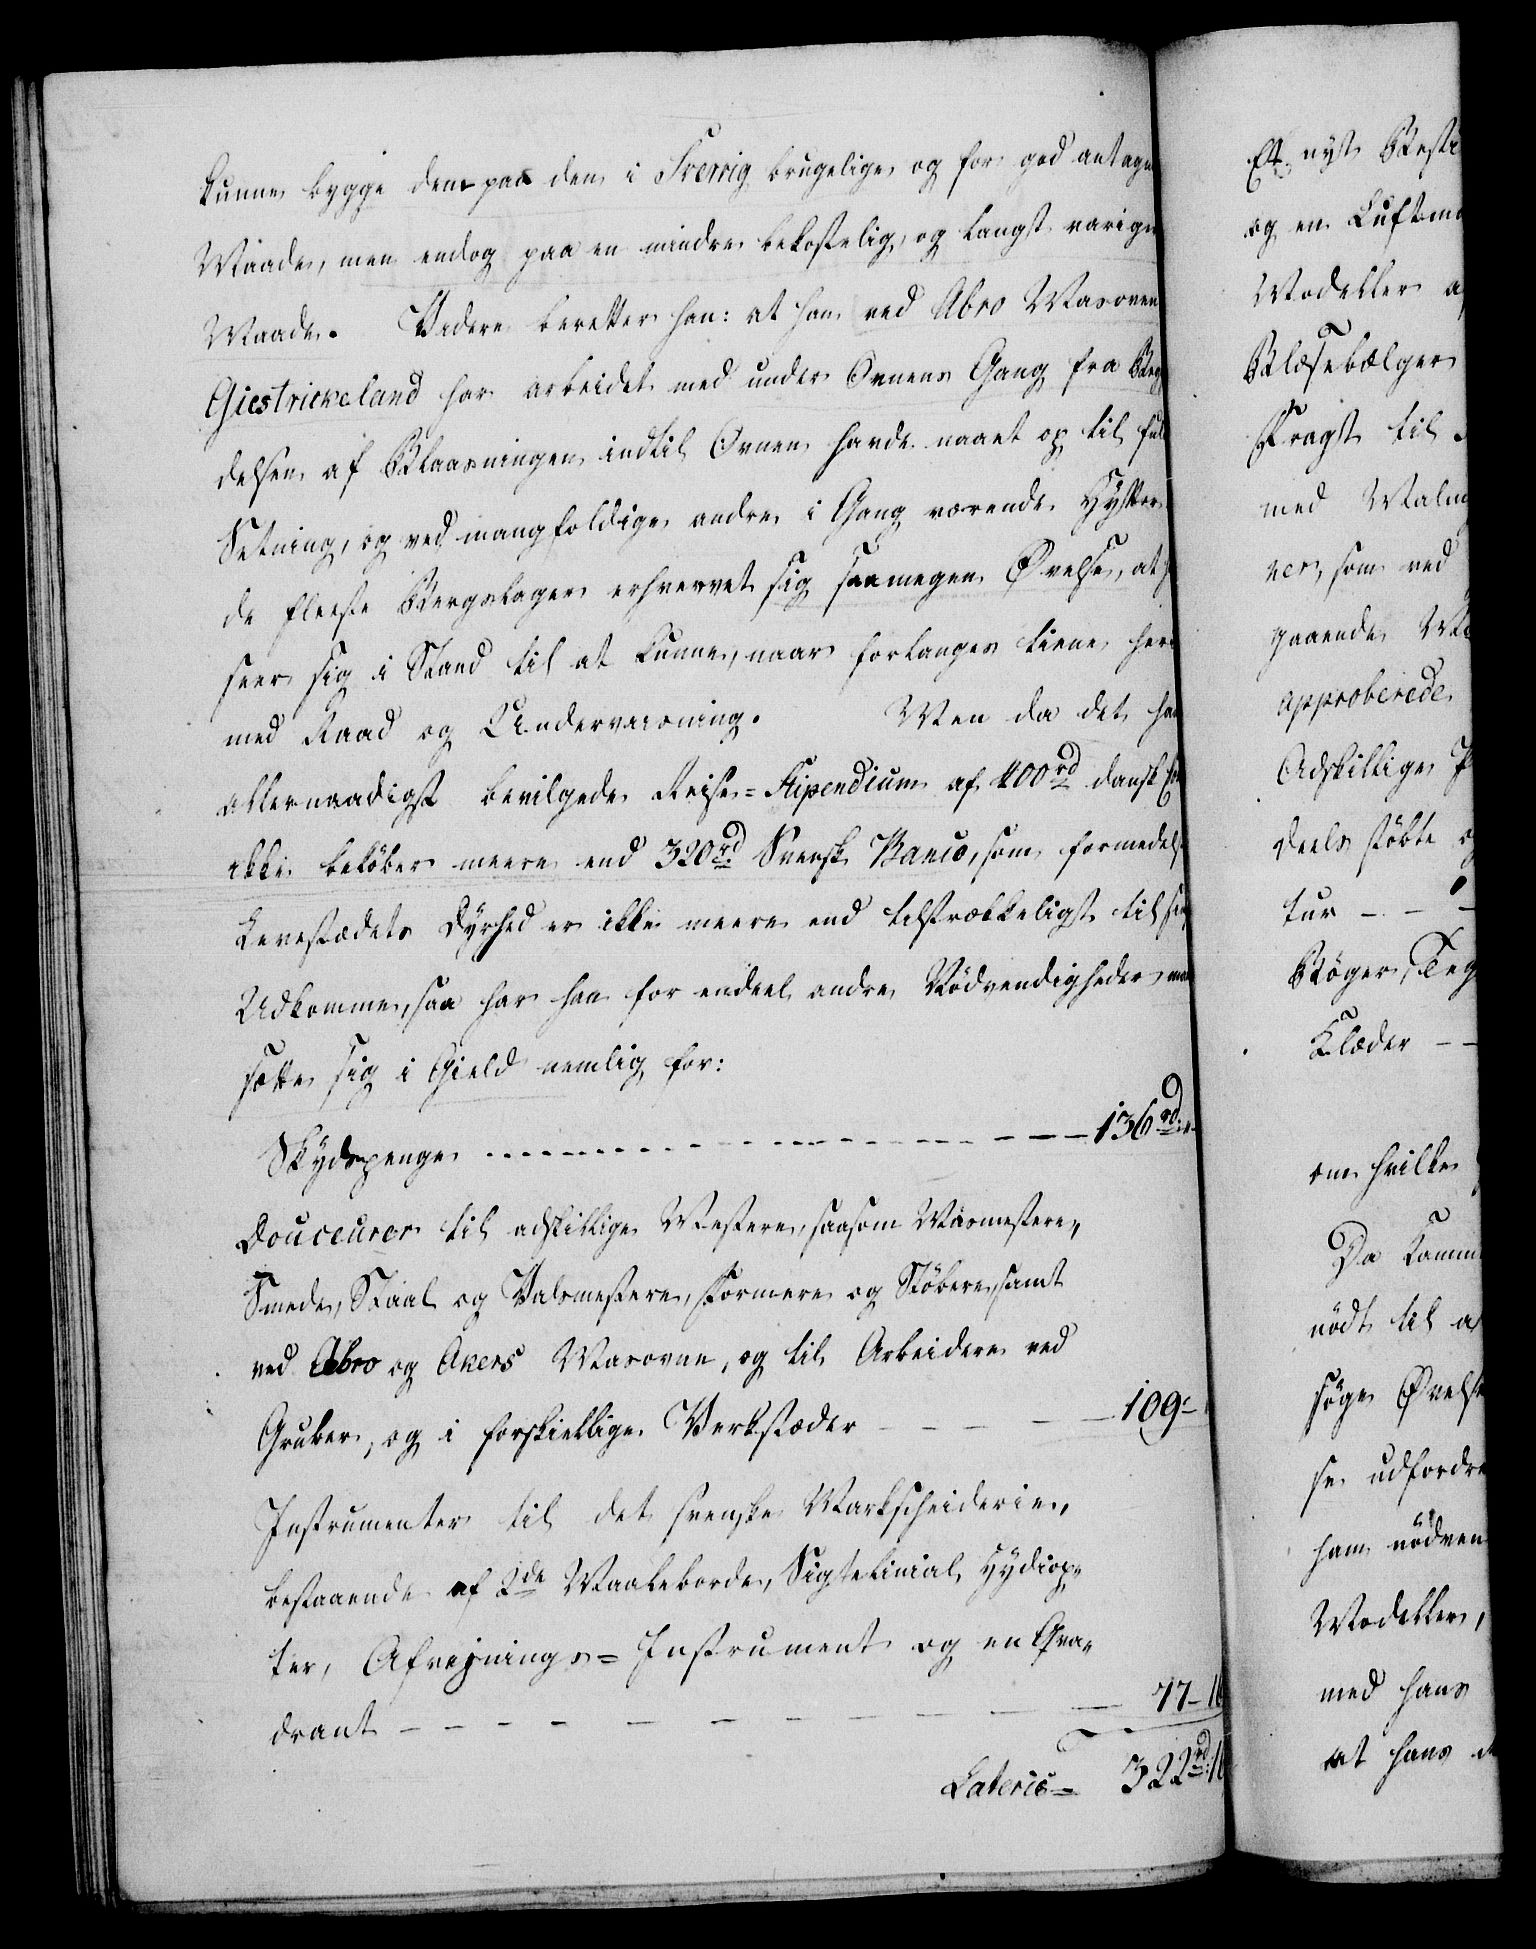 kunne bygge dem paa den i Sverrig brugelige og for god antagne
Maade, men endog paa en mindre bekostelig, og langst varigere
Maade. Videre beretter han: at han ved Åbro Masoven
Giestrickeland har arbeidet med under Ovnens Gang fra Beg
delsen af Blaasningen indtil Ovnen havde naaet op til fuld
Setning, og ved mangfoldige andre i Gang værende Hytter
de fleeste Bergslager erhvervet sig saamegen Øvelse, at
seer sig i Stand til at kunne, naar forlanges tiene her
med Raad og Underviisning. Men da det ham
allernaadigst bevilgede Reise-Stipendium af 400rd dansk
ikke beløber meere end 320rd Svensk Banco, som formedelst
Levestædets Dyrhed er ikke meere end tilstrækkeligt til
Udkomme, saa har han for endeel andre Nödvendigheder
sætte sig i Gield nemlig for:
Skydspenge - - - - - 136rd
Douceurer til adskillige Mestere, saasom Masmestere,
Smede, Staal og Valsmestere, Formere og Støbere, samt
ved Åbro og Akers Masovne, og til Arbeidere ved
Gruber, og i forskiellige Verkstæder - - - - 109
Instrumenter til det svenske Markscheiderie,
bestaaende af 2de Maaleborde, Sigtelinial, Hydiop-
ter, Afvejnings-Instrument og en Qva-
drant - - - - - 77-16
Lateris - 322rd 16
Et nyt
og en Luftma
Modeller a
Blæsebælger
Fragt til
med Malm
ver, som ved
gaaende
approberede
Adskillige
deels støbte
tur - -
Bøger, Teg
Klæder - -
om hvilke
Da Comm
nödt til a
søge Øvelse
se udfordre
ham nödven
Modeller,
med hans
at hans